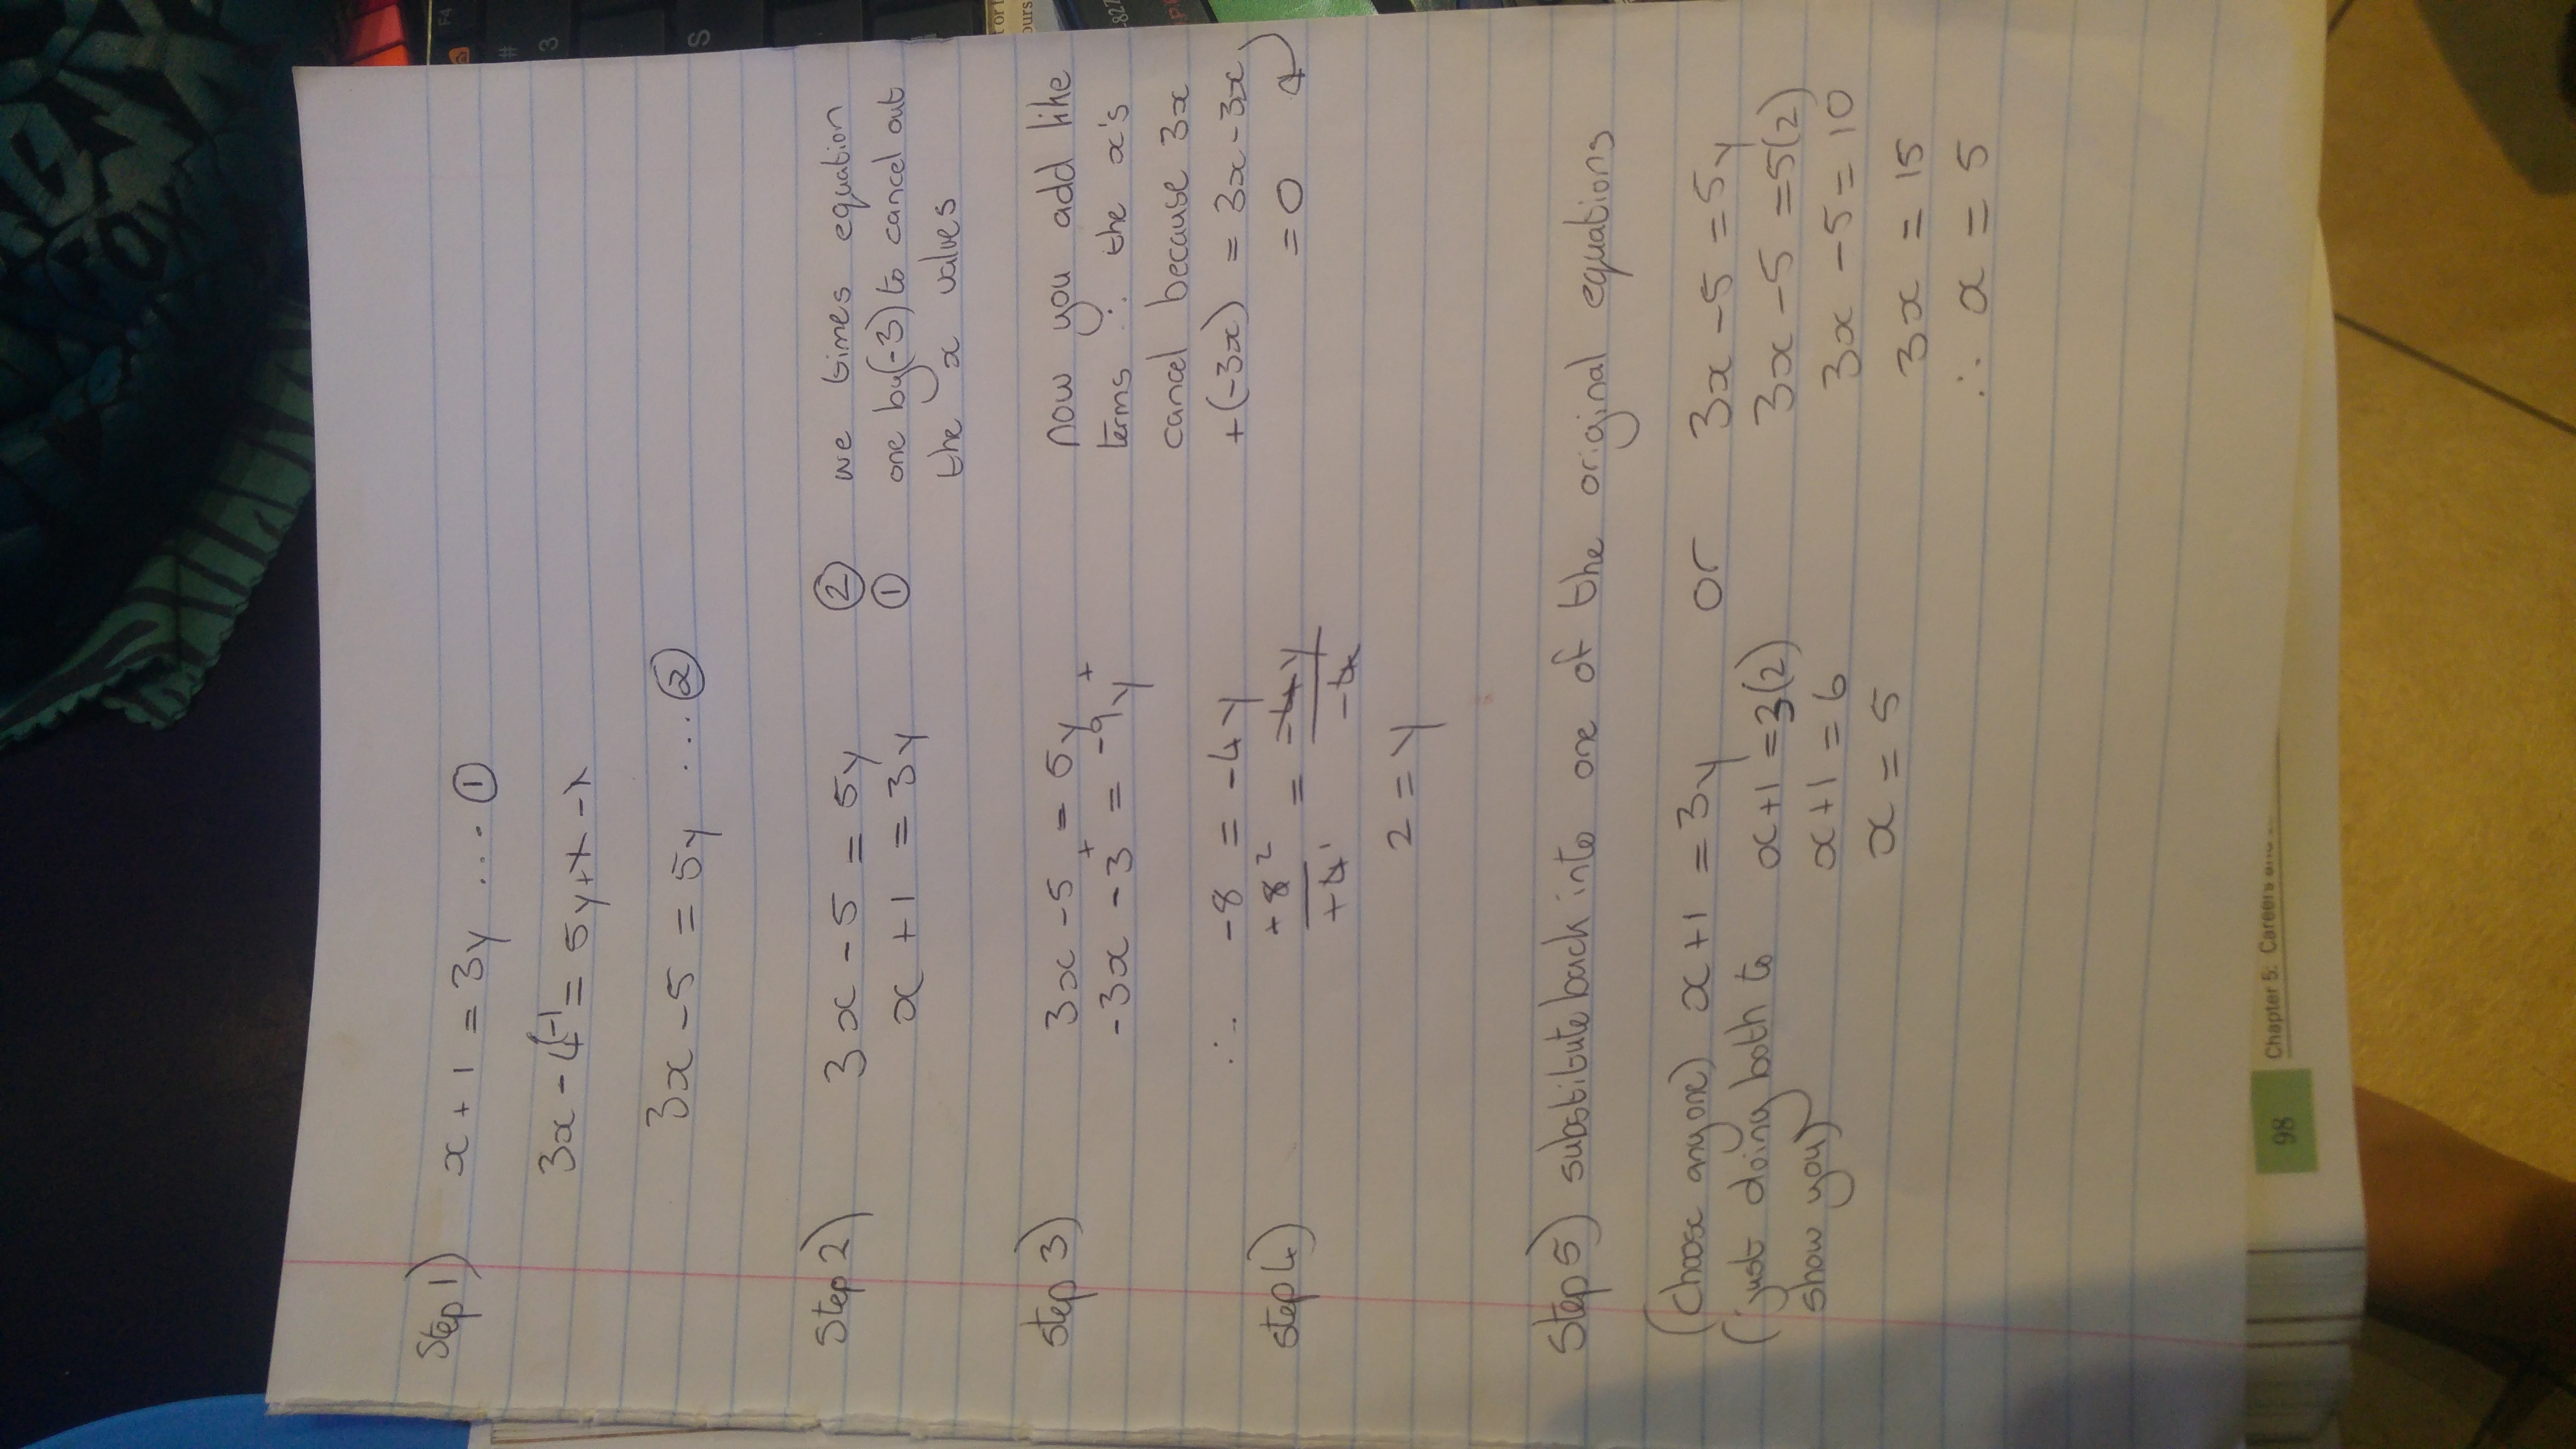 Step 1) x + 1 = 3y .... ①
3x - 4 -1 = 5y + 1 - 1
3x - 5 = 5y .... ②
Step 2) 3x - 5 = 5y ② we times equation
x + 1 = 3y ① one by (-3) to cancel out
the x values
Step 3) 3x - 5 = 5y now you add like
-3x - 3 = -9y terms ∴ the x's
+ +
cancel because 3x
∴ -8 = -4y +(-3x) = 3x - 3x
= 0
Step 4) +8² = -4y
+4¹ -4
2 = y
Step 5) substitute back into one of the original equations
(Choose any one) x + 1 = 3y or 3x - 5 = 5y
(just doing both to x + 1 = 3(2) 3x - 5 = 5(2)
show you) x + 1 = 6 3x - 5 = 10
x = 5 3x = 15
∴ x = 5
98 Chapter 5: Careers and
F4
#
3
S
827